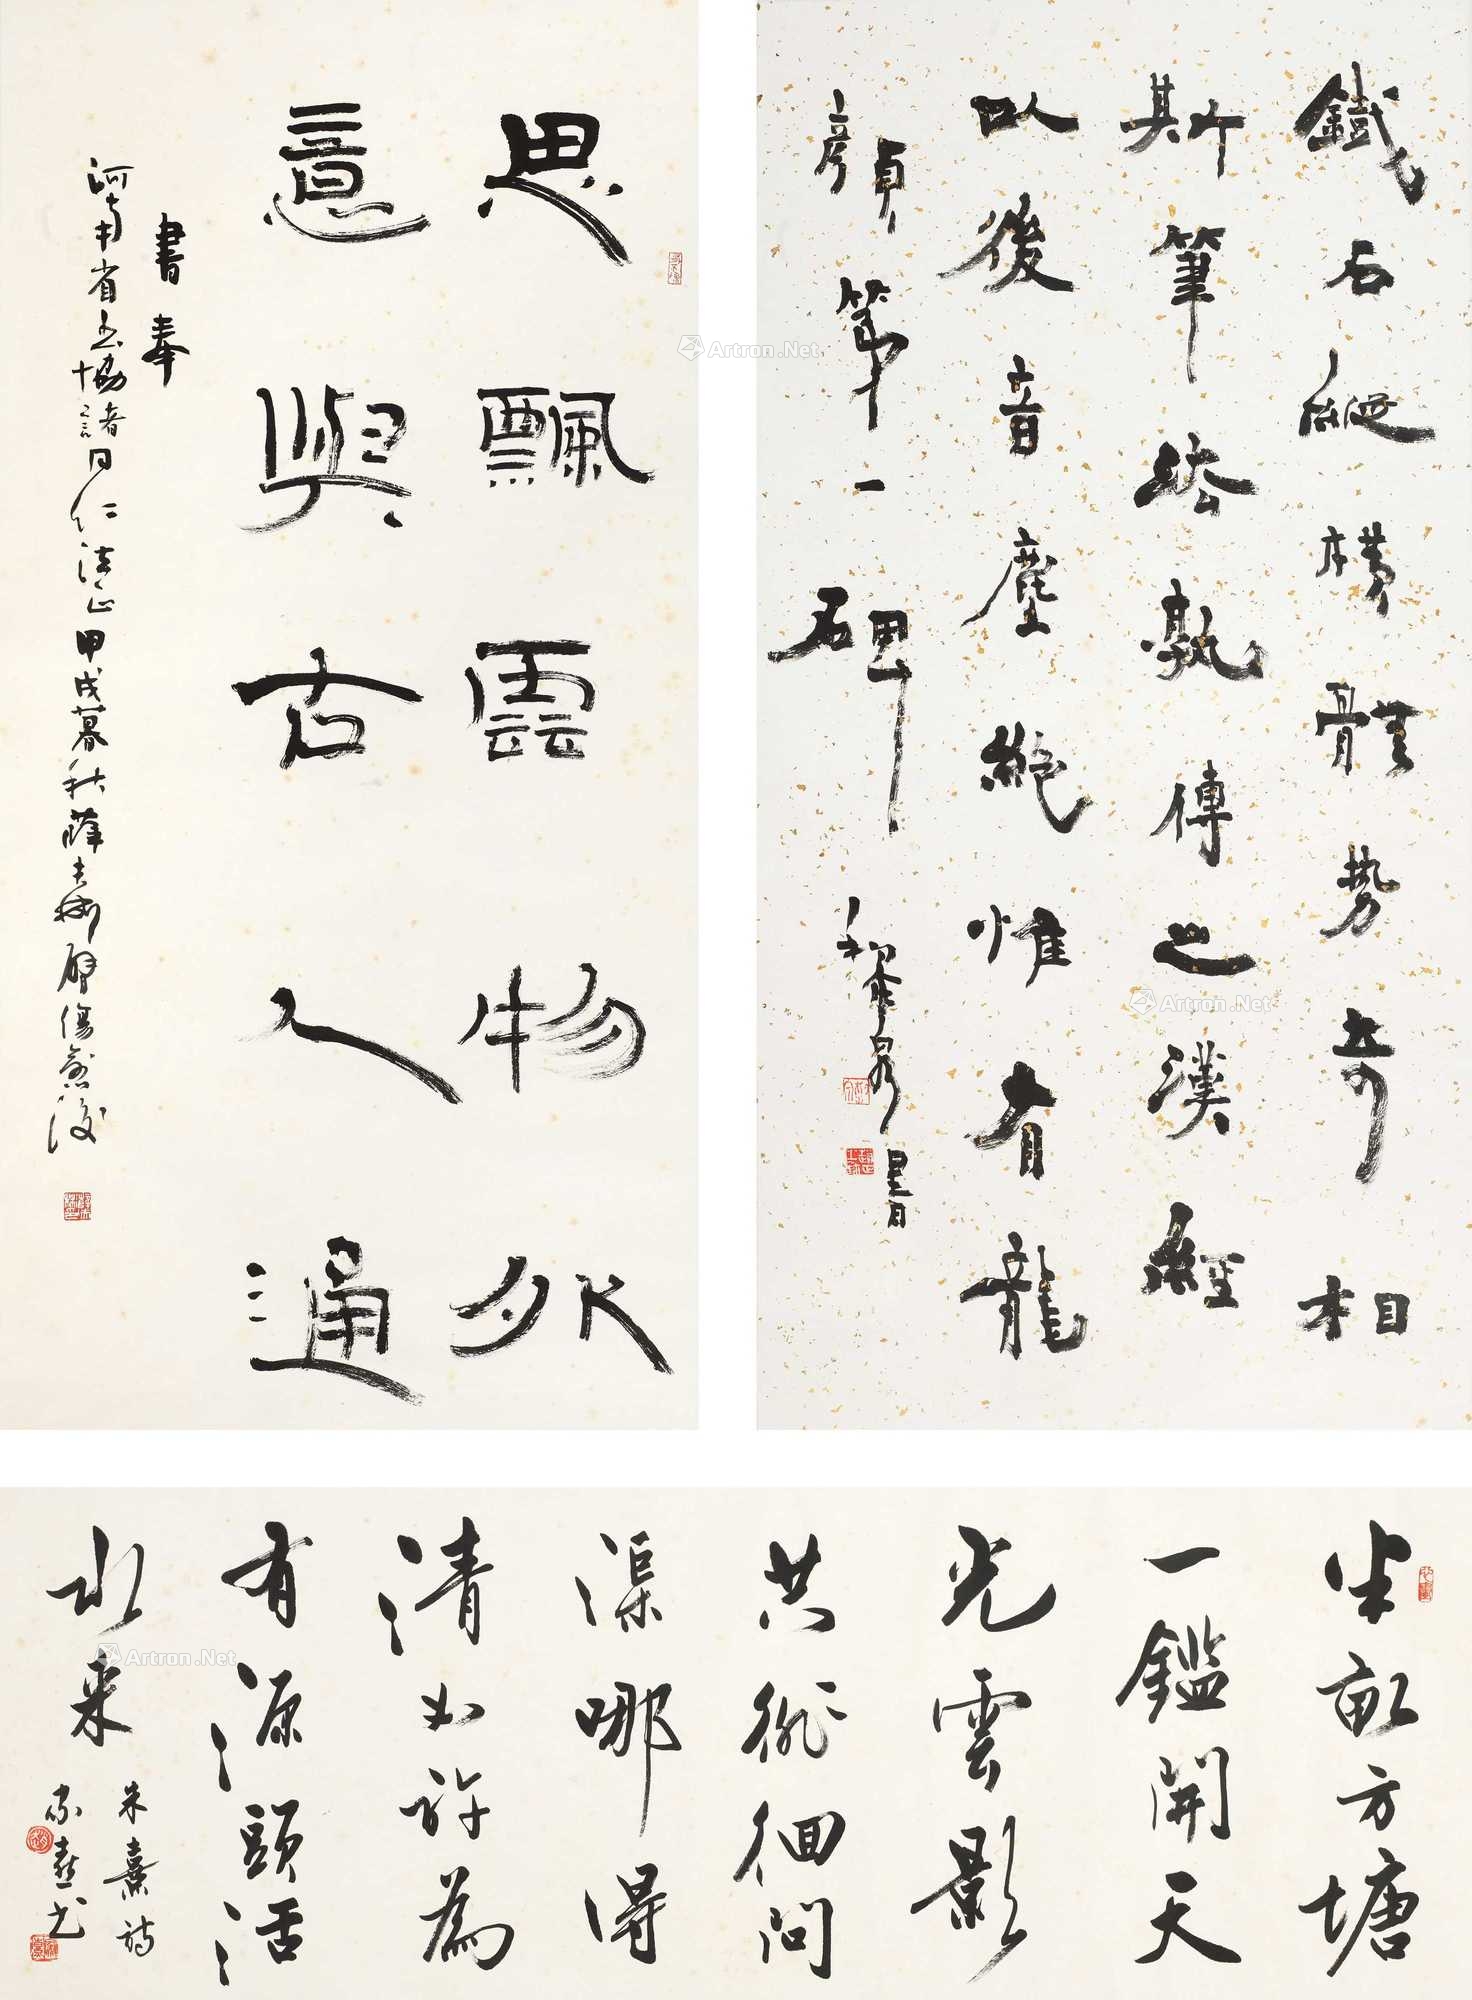 思飄雲物外
意與古人通
書奉
河南省書協諸同仁法正甲戌暮秋薛夫彬
鐵石縱橫體勢奇相
斯筆法孰傳之漢經
以後音塵絕惟有龍
顏第一碑
書
半畝方塘
一鑑開天
光雲影
共徘徊問
渠哪得
清如許為
有源頭活
水來
朱熹詩
家熹書
Artron.Net
Artron.Net
Artron.Net